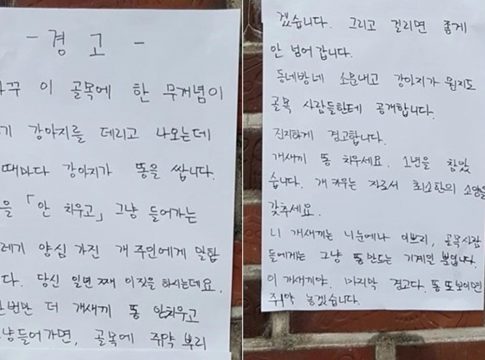 - 경 고 -
꾸 이 골목에 한 무개념이
기 강아지를 데리고 나오는데
때마다 강아지가 똥을 쌉니다.
을 「안 치우고」 그냥 들어가는
레기 양심 가진 개 주인에게 말합
다. 당신 일면 째 이짓을 하시는데요.
번만 더 개새끼 똥 안치우고
냥들어가면, 골목에 쥐약 뿌리
겠습니다. 그리고 걸리면 좋게
안 넘어 갑니다.
동네방네 소문내고 강아지가 뭔지도
골목 사람들한테 공개합니다.
진지하게 경고합니다.
개새끼 똥 치우세요. 1년을 참았
습니다. 개 키우는 자로서 최소한의 소양을
갖추세요.
니 개새끼는 니 눈에나 이쁘지, 골목사람
들에게는 그냥 똥 만드는 기계일 뿐입니다
이 개새끼야. 마지막 경고다. 똥 또 보이면
쥐약 놓겠습니다.